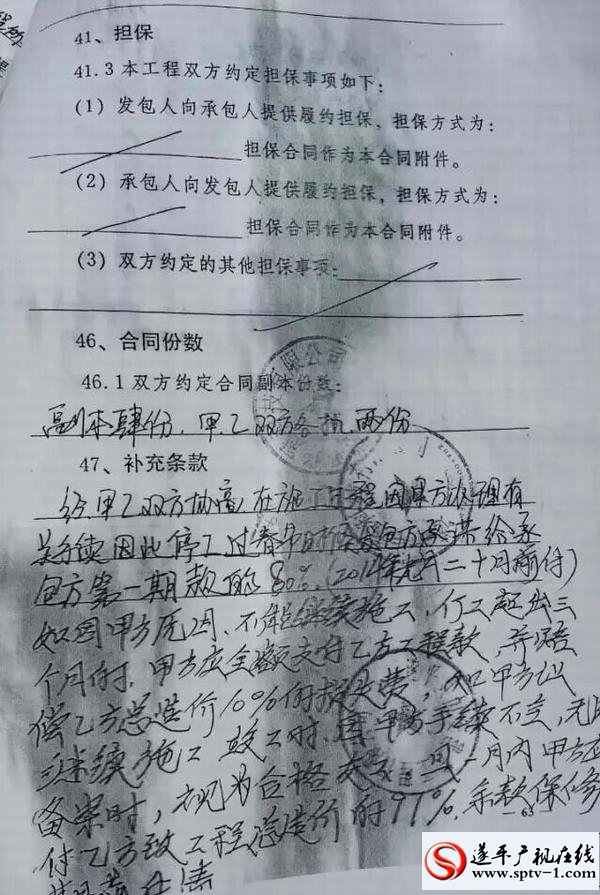 41、担保
41.3本工程双方约定担保事项如下：
(1) 发包人向承包人提供履约担保，担保方式为：
担保合同作为本合同附件。
(2) 承包人向发包人提供履约担保，担保方式为：
担保合同作为本合同附件。
(3) 双方约定的其他担保事项：
46、合同份数
46.1双方约定合同副本份数：
副本肆份，甲乙双方各执两份
47、补充条款
经甲乙双方协商，在施工过程因甲方办理有
关手续因此停工过春年时 发包方承诺给承
包方第一期款的80%。(2014年元月二十日前付)
如因甲方原因，不能继续施工，停工超出三
个月时，甲方应全额支付乙方工程款，并赔
偿乙方总造价10%的损失费，如甲方
继续施工 竣工时，因甲方手续不全，无
备案时，视为合格 一月内甲方应
付乙方致工程总造价的97%，余款保修
63
遂平广视在线
www.sptv-1.com